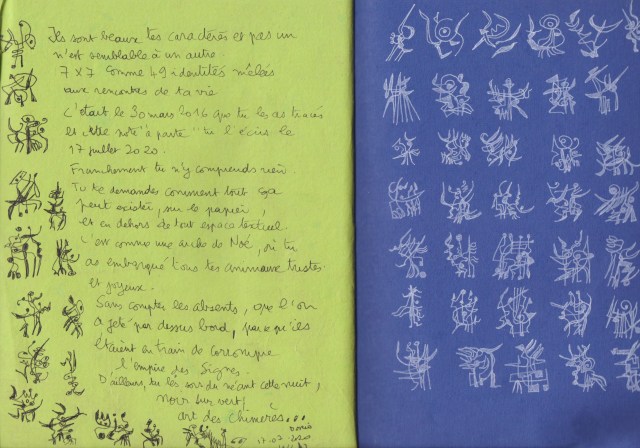 Ils sont beaux tes caractères et pas un
n'est semblable à un autre.
7 x 7 comme 49 identités mêlées
aux rencontres de ta vie
C'était le 30 mars 2016 que tu les as tracés
et cette note "à part" tu l'écris le
17 juillet 2020.
Franchement tu n'y comprends rien.
Tu te demandes comment tout ça
peut exister, sur le papier,
et en dehors de tout espace textuel.
C'est comme une arche de Noé, où tu
as embarqué tous tes animaux tristes
et joyeux.
Sans compter les absents, que l'on
a jeté par dessus bord, parce qu'ils
étaient en train de corrompre
l'empire des Signes.
D'ailleurs, tu les sors du néant cette nuit,
noir sur vert,
art des chimères...
17.07.2020